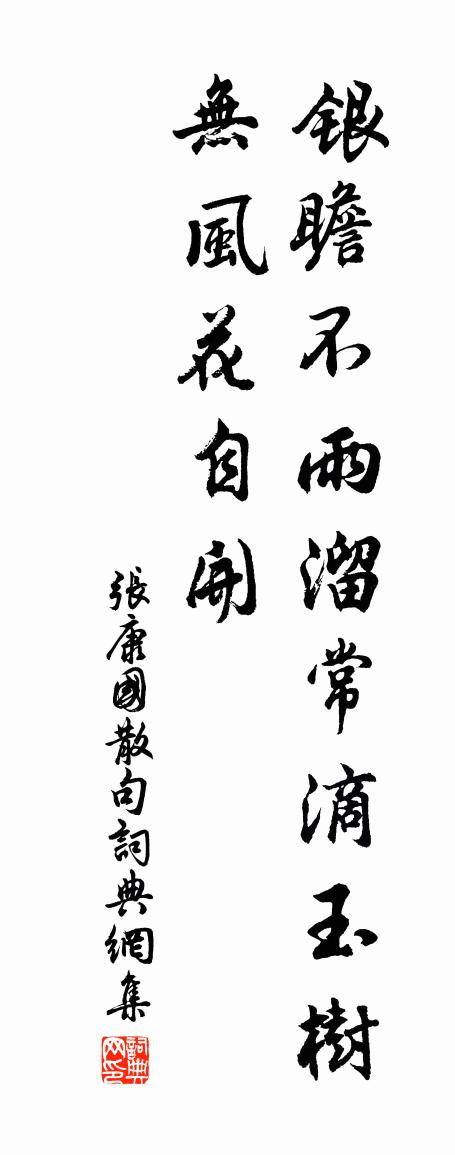 銀瞻不雨溜常滴玉樹
無風花自開
張康國散句詞典網集
詞典网印